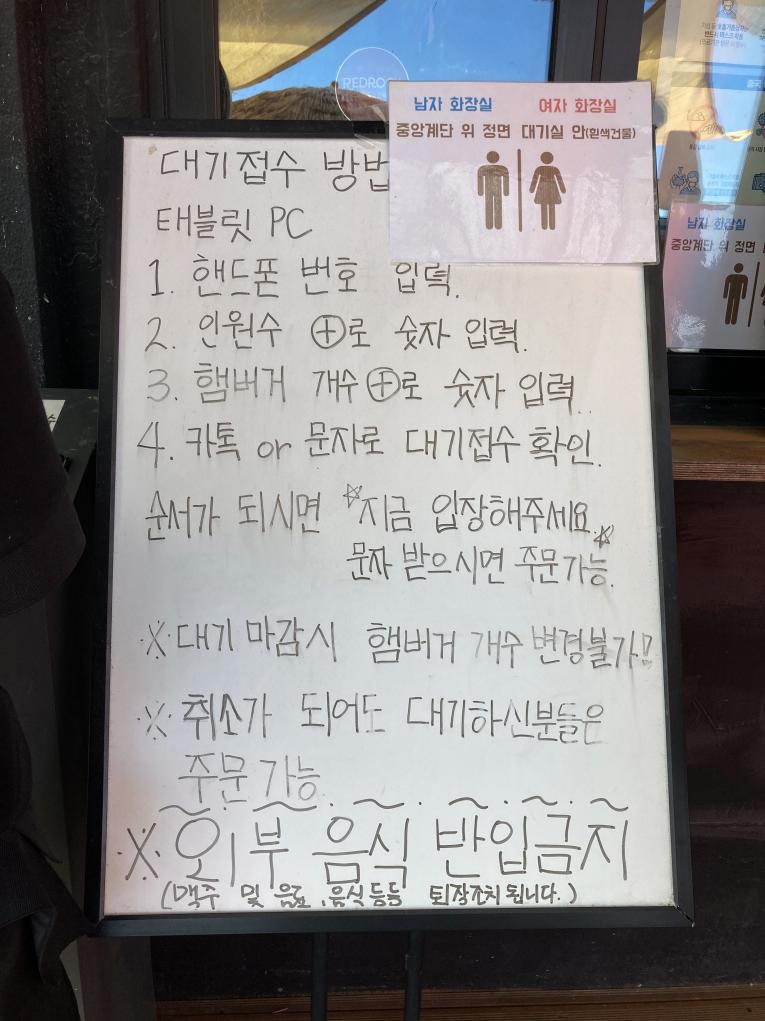 REDROO
남자 화장실 여자 화장실
중앙계단 위 정면 대기실 안(흰색건물)
대기접수 방법
태블릿 PC
1. 핸드폰 번호 입력.
2. 인원수 ⊕로 숫자 입력.
3. 햄버거 개수 ⊕로 숫자 입력.
4. 카톡 or 문자로 대기접수 확인.
순서가 되시면 ☆지금 입장해주세요.☆
문자 받으시면 주문가능.
※ 대기 마감시 햄버거 개수 변경불가!
※ 취소가 되어도 대기하신분들은
주문 가능.
※ 외부 음식 반입금지
(맥주 및 음료, 음식 등등 퇴장조치 됩니다.)
남자 화장실
중앙계단 위 정면